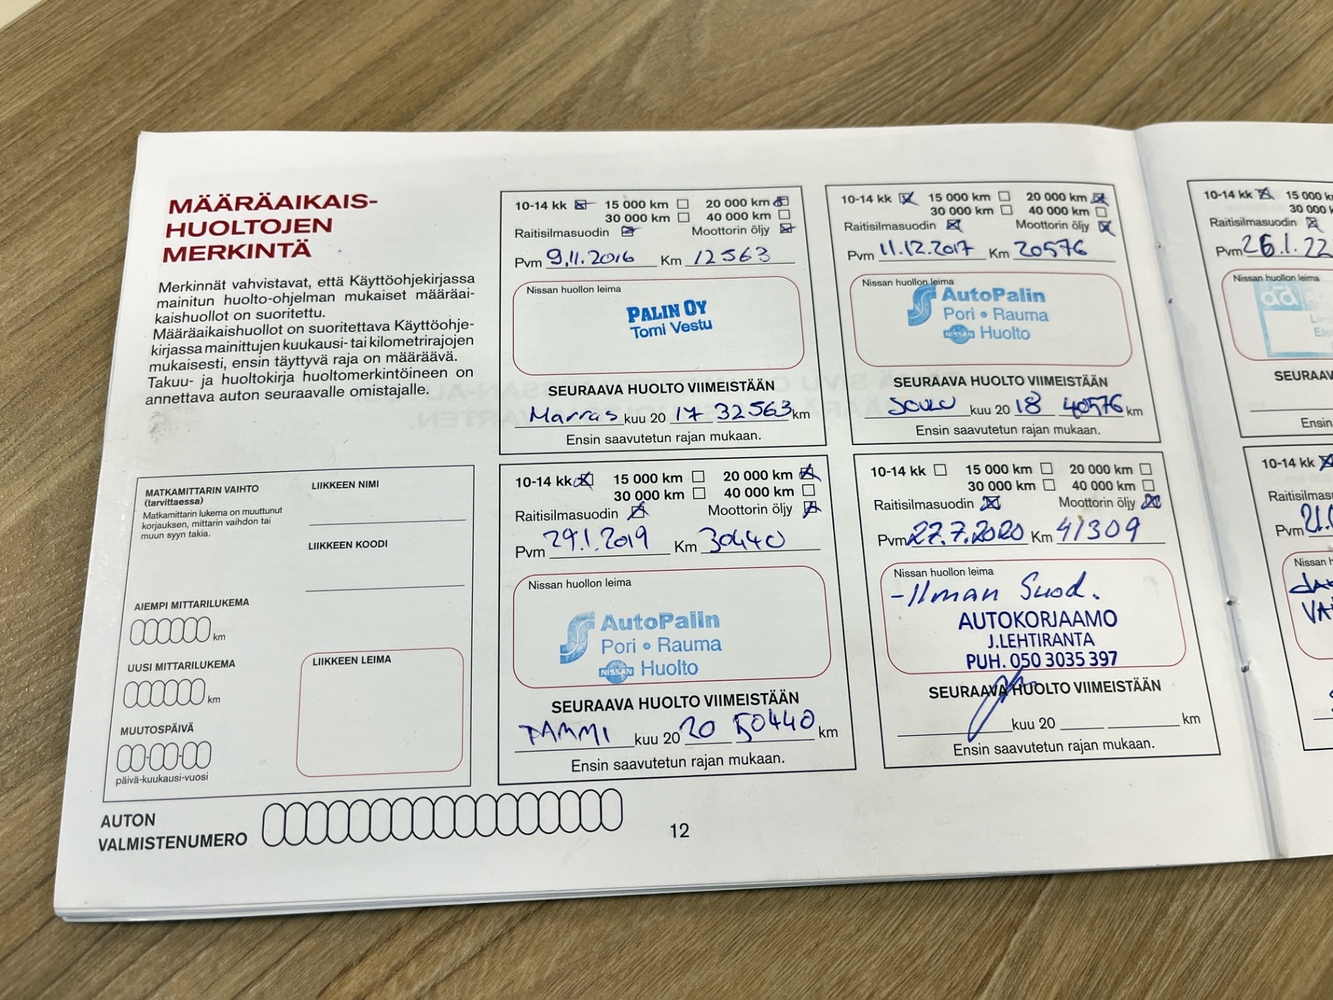 MÄÄRÄAIKAIS-
HUOLTOJEN
MERKINTÄ
Merkinnät vahvistavat, että Käyttöohjekirjassa
mainitun huolto-ohjelman mukaiset määräai-
kaishuollot on suoritettu.
Määräaikaishuollot on suoritettava Käyttöohje-
kirjassa mainittujen kuukausi- tai kilometrirajojen
mukaisesti, ensin täyttyvä raja on määräävä.
Takuu- ja huoltokirja huoltomerkintöineen on
annettava auton seuraavalle omistajalle.
MATKAMITTARIN VAIHTO
(tarvittaessa)
Matkamittarin lukema on muuttunut
korjauksen, mittarin vaihdon tai
muun syyn takia.
AIEMPI MITTARILUKEMA
km
UUSI MITTARILUKEMA
km
MUUTOSPÄIVÄ
päivä-kuukausi-vuosi
LIIKKEEN NIMI
LIIKKEEN KOODI
LIIKKEEN LEIMA
AUTON
VALMISTENUMERO
10-14 kk 15 000 km 20 000 km
30 000 km 40 000 km
Raitisilmasuodin Moottorin öljy
Pvm 9.11.2016 Km 12563
Nissan huollon leima
PALIN OY
Tomi Vestu
SEURAAVA HUOLTO VIIMEISTÄÄN
Marras kuu 20 17 32563 km
Ensin saavutetun rajan mukaan.
10-14 kk 15 000 km 20 000 km
30 000 km 40 000 km
Raitisilmasuodin Moottorin öljy
Pvm 11.12.2017 Km 20576
Nissan huollon leima
AutoPalin
Pori • Rauma
NISSAN Huolto
SEURAAVA HUOLTO VIIMEISTÄÄN
JOULU kuu 20 18 40576 km
Ensin saavutetun rajan mukaan.
10-14 kk 15 000 km 20 000 km
30 000 km 40 000 km
Raitisilmasuodin Moottorin öljy
Pvm 29.1.2019 Km 30440
Nissan huollon leima
AutoPalin
Pori • Rauma
NISSAN Huolto
SEURAAVA HUOLTO VIIMEISTÄÄN
TAMMI kuu 20 20 50440 km
Ensin saavutetun rajan mukaan.
10-14 kk 15 000 km 20 000 km
30 000 km 40 000 km
Raitisilmasuodin Moottorin öljy
Pvm 27.7.2020 Km 41309
Nissan huollon leima
-Ilman Suod.
AUTOKORJAAMO
J.LEHTIRANTA
PUH. 050 3035 397
SEURAAVA HUOLTO VIIMEISTÄÄN
kuu 20 km
Ensin saavutetun rajan mukaan.
12
10-14 kk 15 000
30 000
Raitisilmasuodin
Pvm 26.1.22
Nissan huollon leima
SEURAAV
Ensin
10-14 kk
Raitisilmas
Pvm
Nissan h